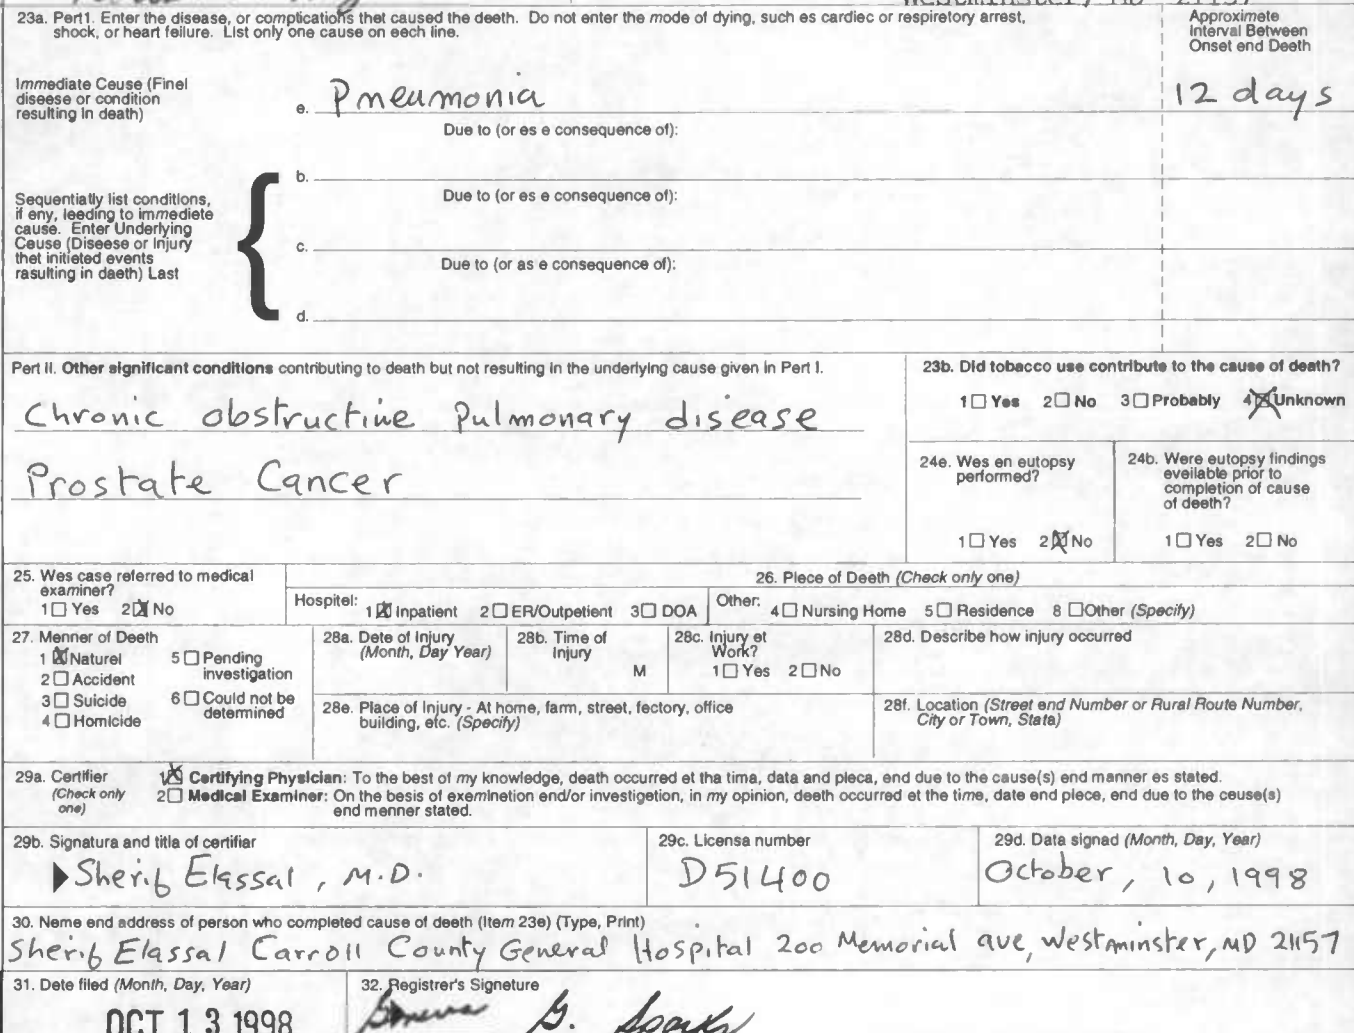 23a. Part1. Enter the disease, or complications that caused the death. Do not enter the mode of dying, such as cardiac or respiratory arrest,
shock, or heart failure. List only one cause on each line.
Approximate
Interval Between
Onset and Death
Immediate Cause (Final
disease or condition
resulting in death)
a. Pneumonia 12 days
Due to (or as a consequence of):
b.
Due to (or as a consequence of):
Sequentially list conditions,
if any, leading to immediate
cause. Enter Underlying
Cause (Disease or Injury
that initiated events
resulting in death) Last
c.
Due to (or as a consequence of):
d.
Part II. Other significant conditions contributing to death but not resulting in the underlying cause given in Part I.
Chronic obstructive Pulmonary disease
Prostate Cancer
23b. Did tobacco use contribute to the cause of death?
1 Yes 2 No 3 Probably 4 Unknown
24a. Was an autopsy
performed?
1 Yes 2 No
24b. Were autopsy findings
available prior to
completion of cause
of death?
1 Yes 2 No
25. Was case referred to medical
examiner?
1 Yes 2 No
26. Place of Death (Check only one)
Hospital: 1 Inpatient 2 ER/Outpatient 3 DOA Other: 4 Nursing Home 5 Residence 8 Other (Specify)
27. Manner of Death
1 Natural 5 Pending
investigation
2 Accident
3 Suicide 6 Could not be
determined
4 Homicide
28a. Date of Injury
(Month, Day Year)
28b. Time of
Injury
M
28c. Injury at
Work?
1 Yes 2 No
28d. Describe how injury occurred
28e. Place of Injury - At home, farm, street, factory, office
building, etc. (Specify)
28f. Location (Street and Number or Rural Route Number,
City or Town, State)
29a. Certifier
(Check only
one)
1 Certifying Physician: To the best of my knowledge, death occurred at the time, date and place, and due to the cause(s) and manner as stated.
2 Medical Examiner: On the basis of examination and/or investigation, in my opinion, death occurred at the time, date and place, and due to the cause(s)
and manner stated.
29b. Signature and title of certifier
Sherif Elassal, M.D.
29c. License number
D51400
29d. Date signed (Month, Day, Year)
October, 10, 1998
30. Name and address of person who completed cause of death (Item 23a) (Type, Print)
Sherif Elassal Carroll County General Hospital 200 Memorial ave, Westminster, MD 21157
31. Date filed (Month, Day, Year)
OCT 13 1998
32. Registrar's Signature